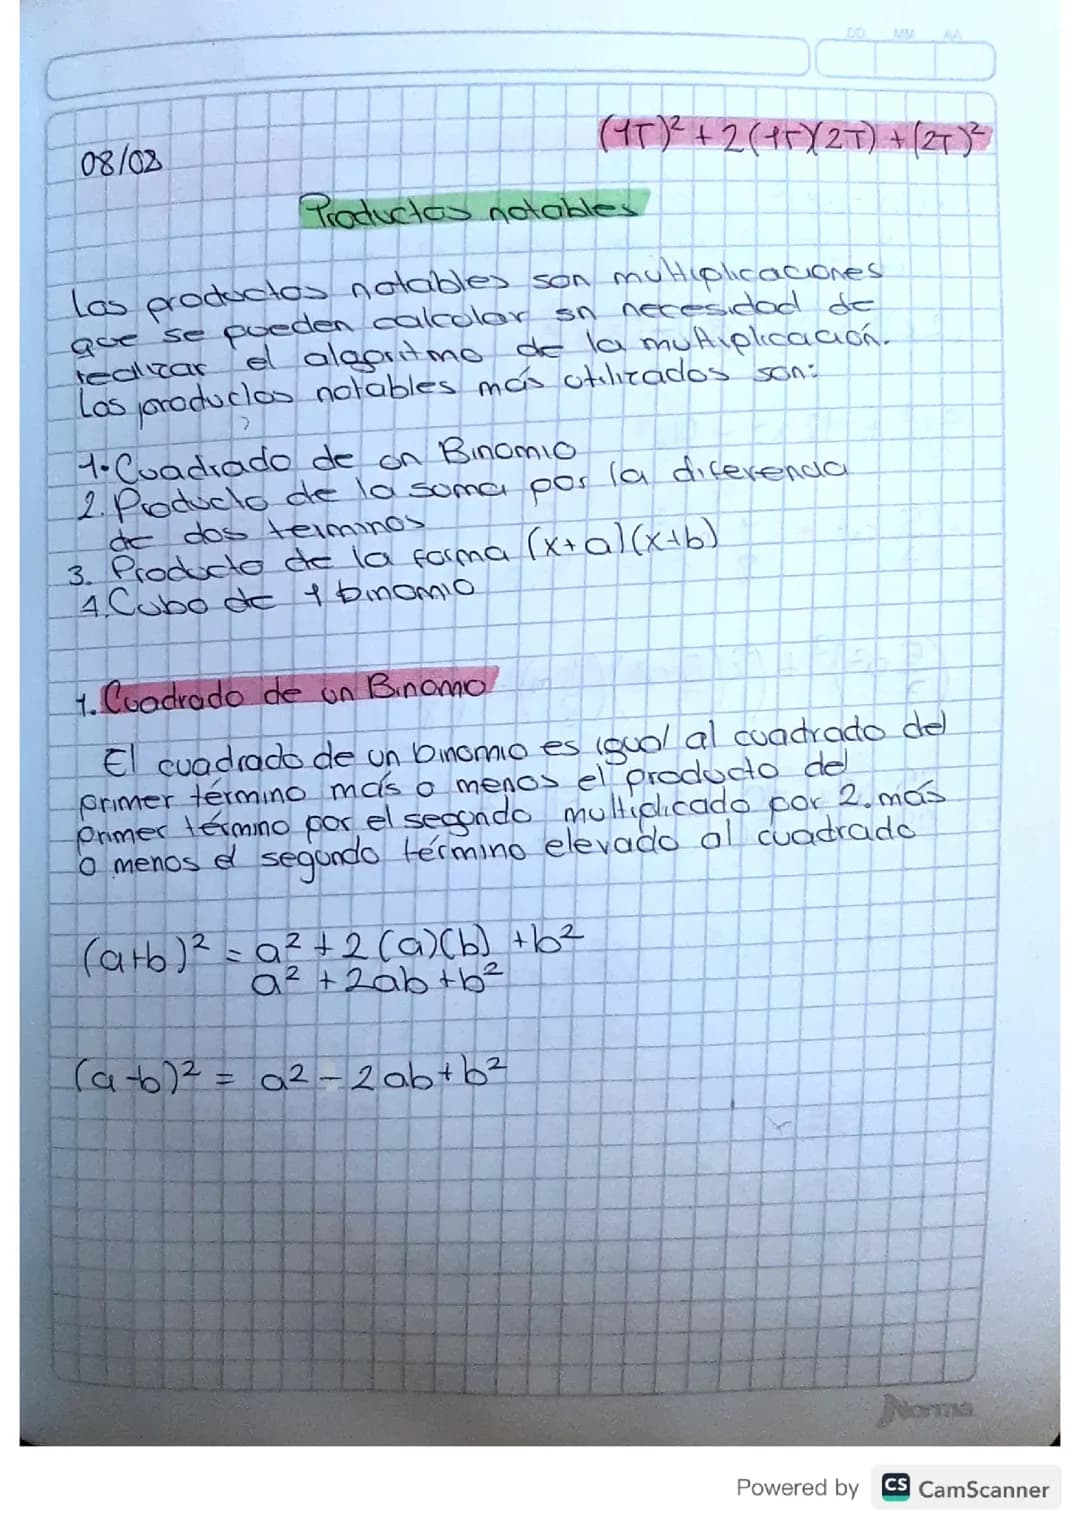 DD MM AA
(1T)² + 2(1T)(2T) + (2T)²
08/02
Productos notables
Los productos notables son multiplicaciones
que se pueden calcular sn necesidad de
realizar el algoritmo de la multiplicación.
Los productos notables más utilizados son:
1. Cuadrado de un Binomio
2. Producto de la soma por la diferencia
de dos terminos
3. Producto de la forma (x+a)(x+b)
4. Cubo de 1 binomio
1. Cuadrado de un Binomio
El cuadrado de un binomio es igual al cuadrado del
primer término más o menos el producto del
primer término por el segundo multiplicado por 2. más
o menos el segundo término elevado al cuadrado
(a+b)² = a² + 2(a)(b) + b²
a² + 2ab + b²
(a-b)² = a² - 2ab + b²
Norma
Powered by CS CamScanner